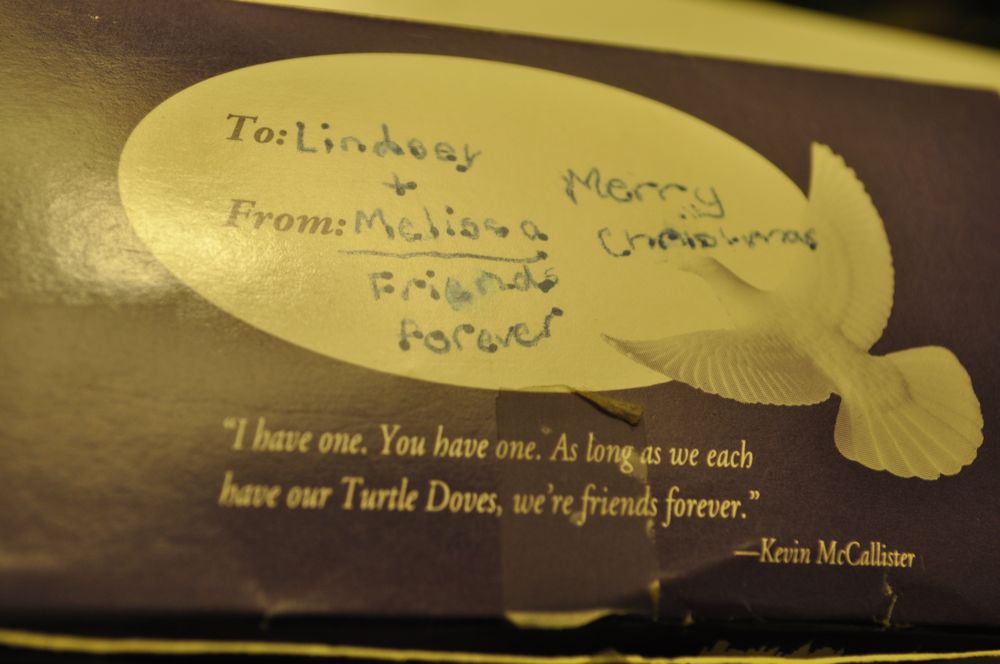 To: Lindsey
+
From: Melissa
Friends
forever
Merry
Christmas
“I have one. You have one. As long as we each
have our Turtle Doves, we’re friends forever.”
—Kevin McCallister